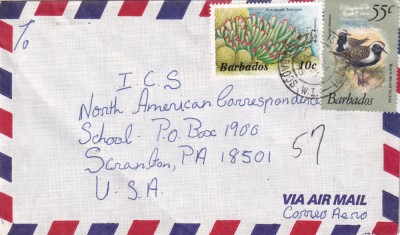 To
55c
10c
Barbados
Barbados
I.C.S
North American Correspondence
School. P.O Box 1900
Scranton, PA 18501
U.S.A.
57
VIA AIR MAIL
Correo Aero